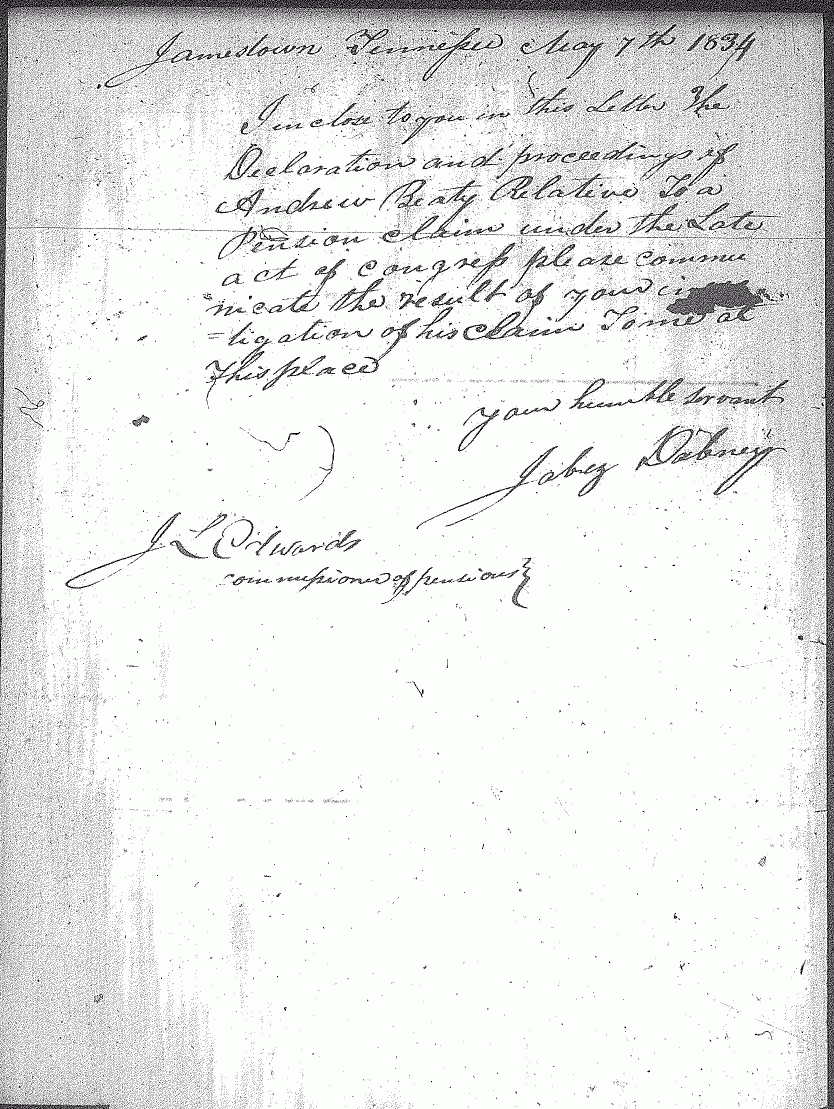 Jamestown Tennessee May 7th 1834
I inclose to you in this Letter The
Declaration and proceedings of
Andrew Beaty Relative To a
Pension claim under the Late
act of congress please commu
nicate the result of your in
=tigation of his claim To me at
This place
your humble servant
Jabez Dabney
J L Edwards
commissioner of pensions}